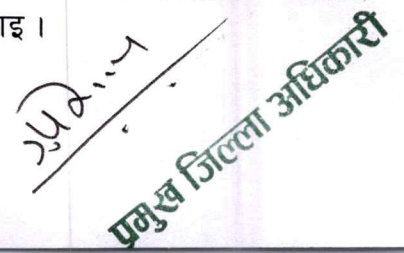 ाइ ।
प्रमुख जिल्ला अधिकारी